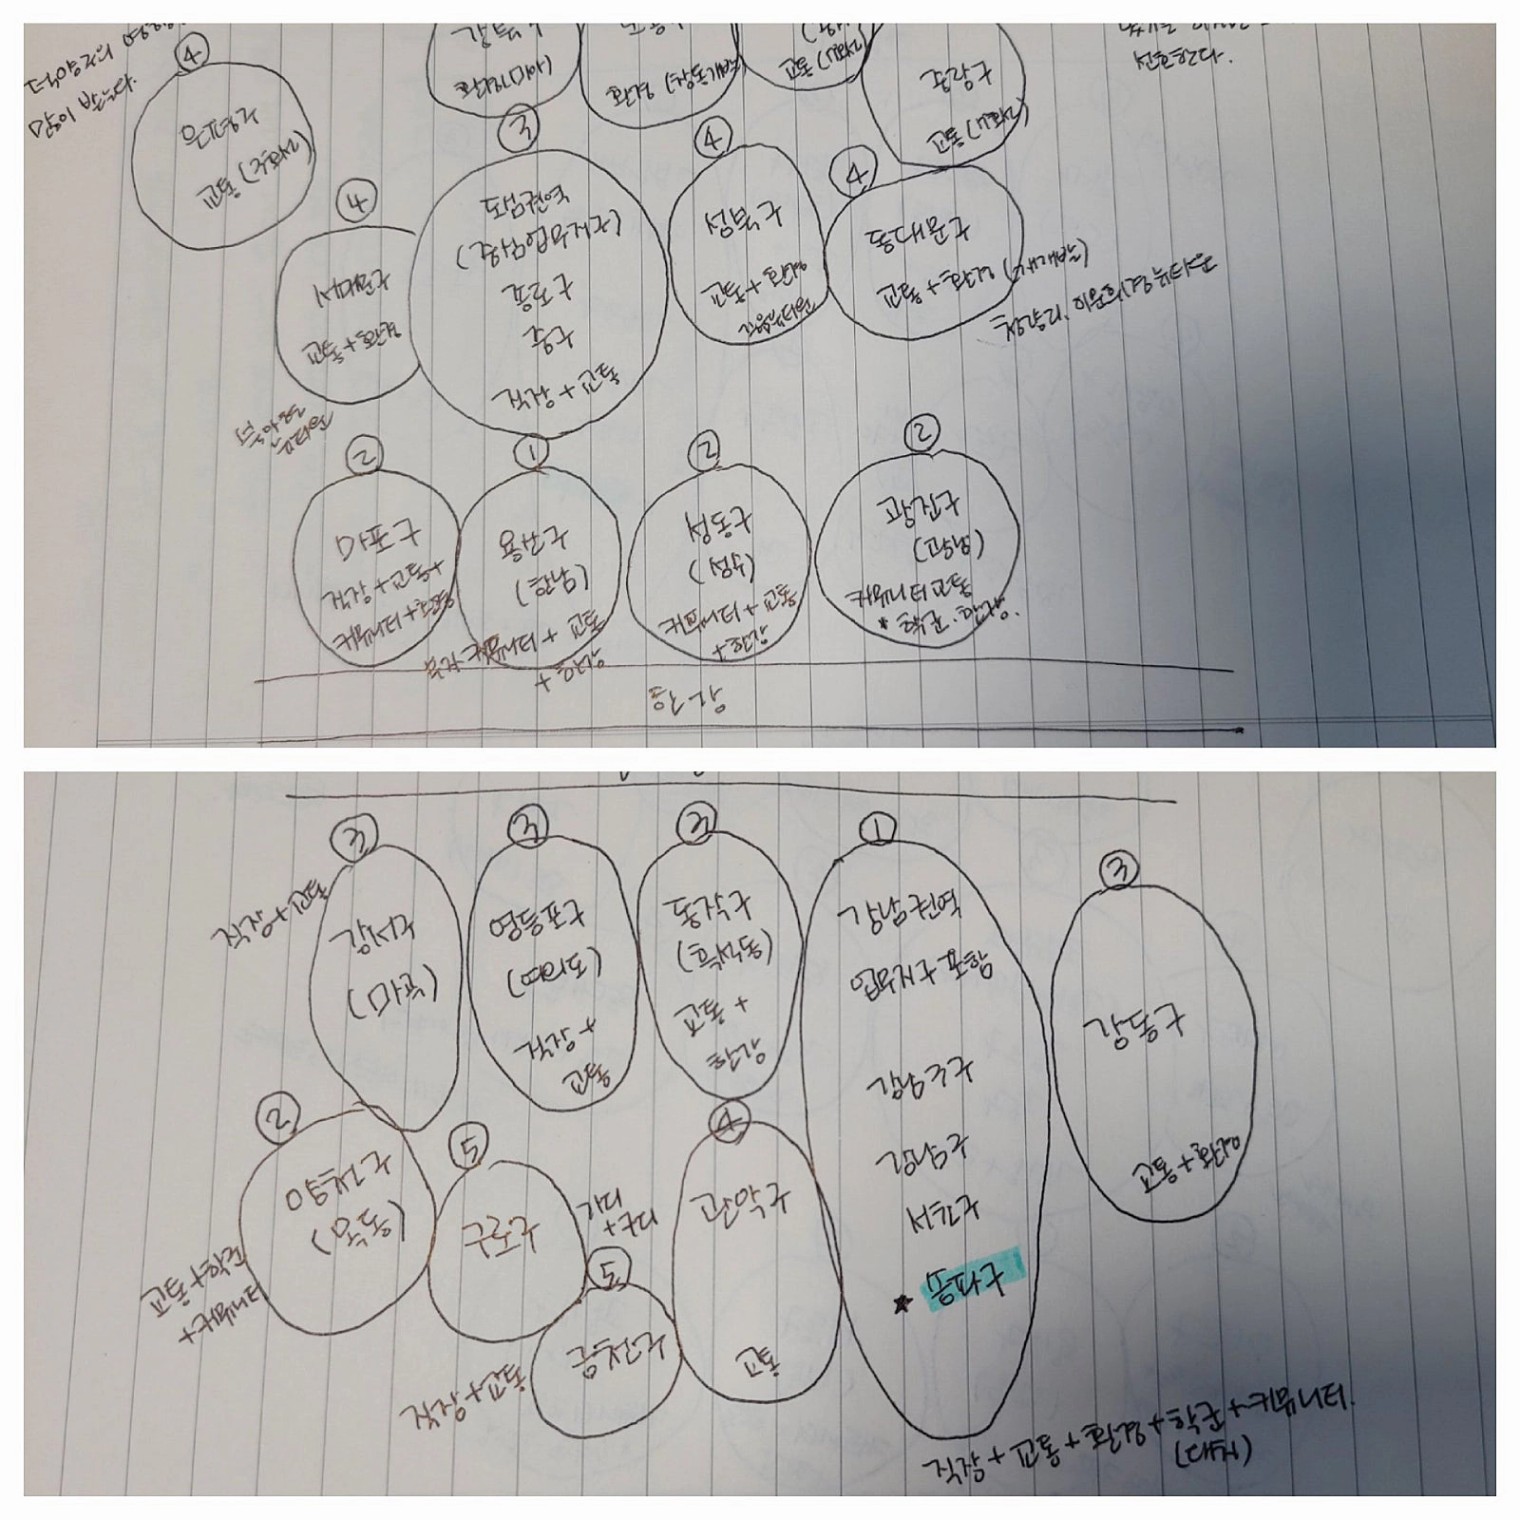 많이 받는다.
선호한다.
④
은평구
교통 (3호선)
강북구
환경(미아)
환경 (창동개발)
중랑구
③
도심권역
(중심업무지구)
종로구
중구
직장 + 교통
④
성북구
교통 + 환경
④
동대문구
교통 + 환경 (재개발)
청량리. 이문휘경 뉴타운
④
서대문구
교통 + 환경
북아현
뉴타운
②
마포구
직장 + 교통 +
커뮤니티 + 환경
①
용산구
(한남)
부자 커뮤니티 + 교통
+ 한강
②
성동구
(성수)
커뮤니티 + 교통
+ 한강
②
광진구
(광남)
커뮤니티 교통
* 학군. 한강.
한강
③
직장 + 교통
강서구
(마곡)
③
영등포구
(여의도)
직장 +
교통
③
동작구
(흑석동)
교통 +
한강
①
강남권역
업무지구 포함
강남 3구
강남구
서초구
★ 송파구
직장 + 교통 + 환경 + 학군 + 커뮤니티.
(대치)
③
강동구
교통 + 환경
②
양천구
(목동)
교통 + 학군
+ 커뮤니티
⑤
구로구
가디
+ 구디
⑤
금천구
직장 + 교통
④
관악구
교통